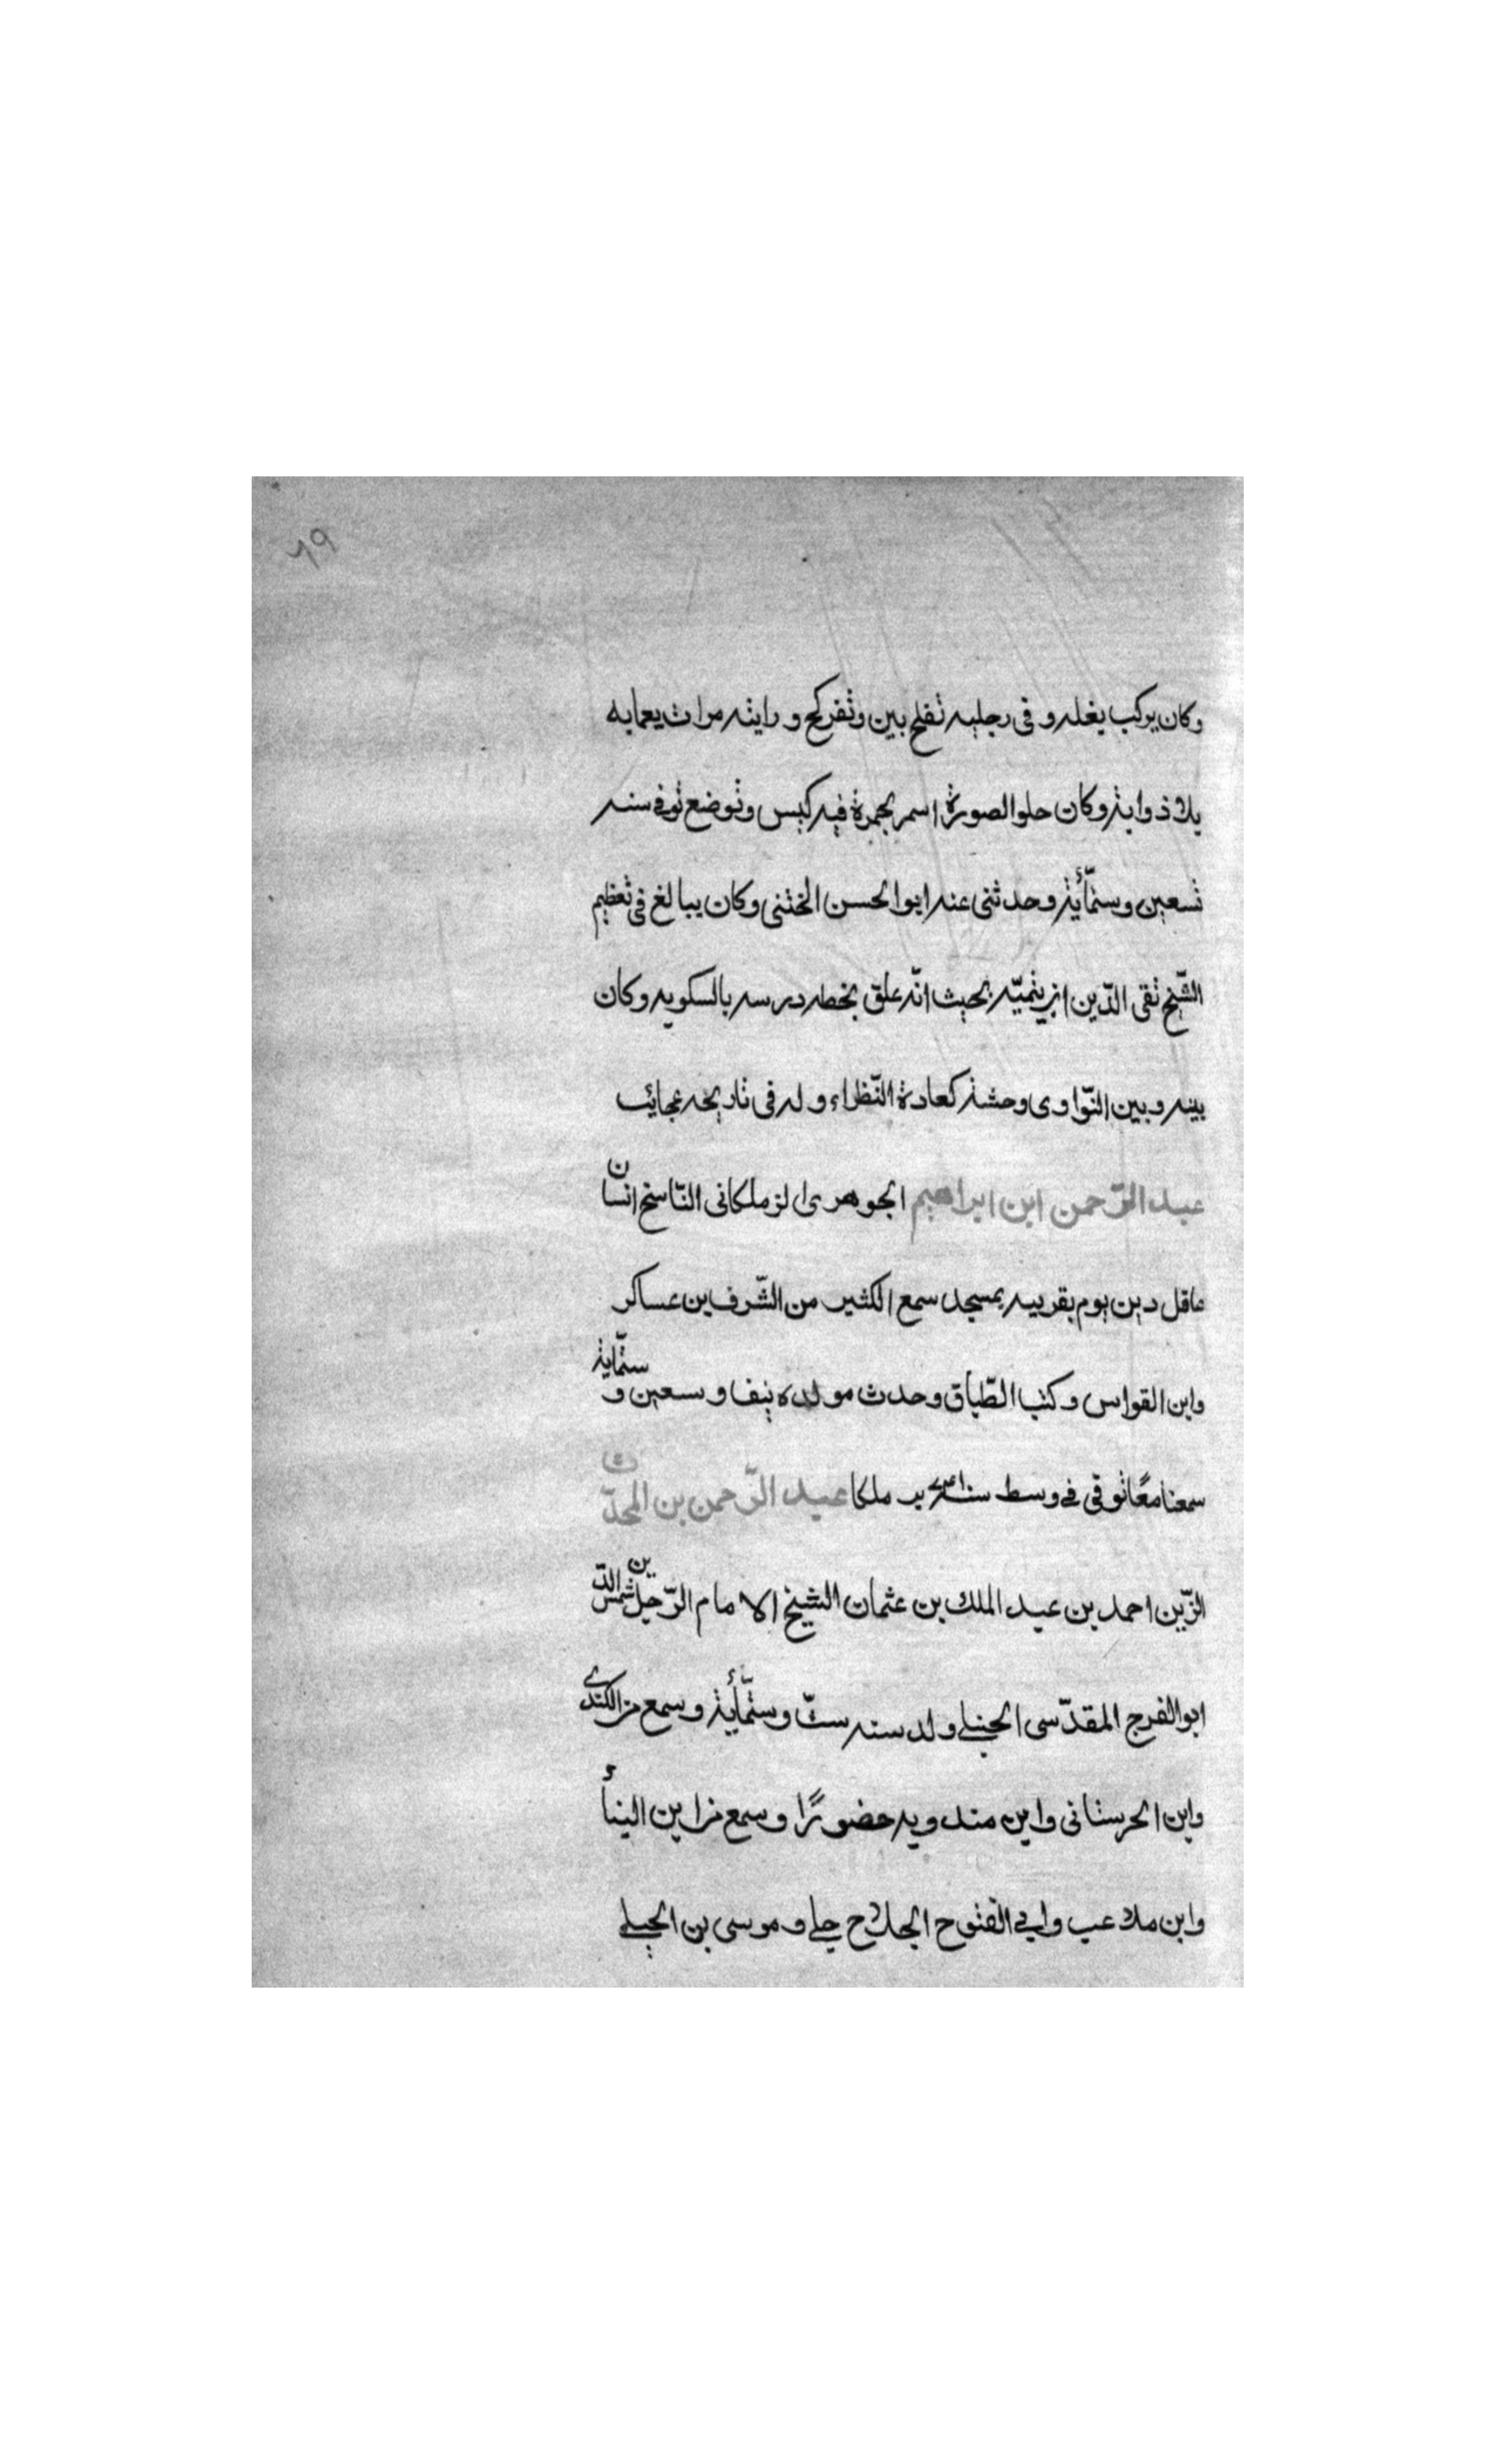 ٦٩
وكان يركب بغله وفى رجليه تفلح بين وتفركح ورايته مرات يعمابه
بلا ذوابة وكان حلو الصورة اسمر بحمرة فيه كيس وتوضع توفى سنه
تسعين وستمّأية وحدثنى عنه ابوالحسن الختنى وكان يبالغ فى تعظيم
الشّيخ تقى الدّين ابن يتميّه بحيث انّه علق بخطه درسه بالسكويه وكان
بينه وبين النّواوى وحشة كعادة النّظراء وله فى تاريخه عجائب
عبد الرّحمن ابن ابراهيم الجوهرى الزملكانى النّاسخ انسان
عاقل دين يوم بقريبه بمسجد سمع الكثير من الشّرف بن عساكر
وابن القواس وكتب الطّباق وحدث مولده نيف وسعين وستمّاية
سمعنا معًا توقى فى وسط سنة ملكا عبد الرّحمن بن المحدّث
الزّين احمد بن عبد الملك بن عثمان الشيخ الامام الرّحيل شمس الدّين
ابوالفرج المقدّسى الحنبلى ولد سنه ستّ وستمّأية وسمع من الكندى
وابن الحرستانى وابن مندويه حضورًا وسمع من ابن البنأ
وابن ملاعب وابى الفتوح الجلاجلى وموسى بن الجيلى